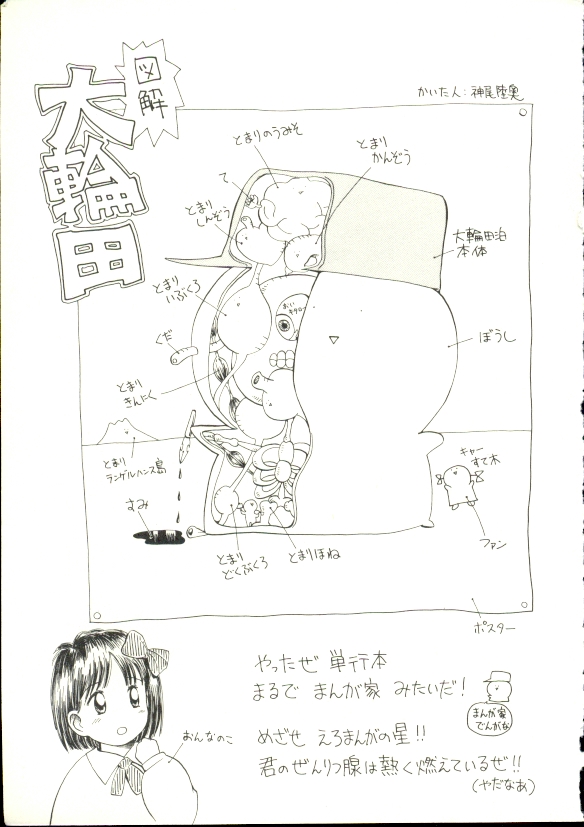 図解
大輪田
かいた人：神尾陸奥
とまりのうみそ
とまり
かんぞう
て
とまり
しんぞう
大輪田泊
本体
とまり
いぶくろ
おい
キタロー
くだ
ぼうし
とまり
きんにく
とまり
ランゲルハンス島
キャー
すて木
すみ
ファン
とまり
どくぶくろ
とまりほね
ポスター
やったぜ 単行本
まるで まんが家 みたいだ！
まんが家
でんがな
おんなのこ
めざせ えろまんがの星!!
君のぜんりつ腺は熱く燃えているぜ!!
(やだなあ)